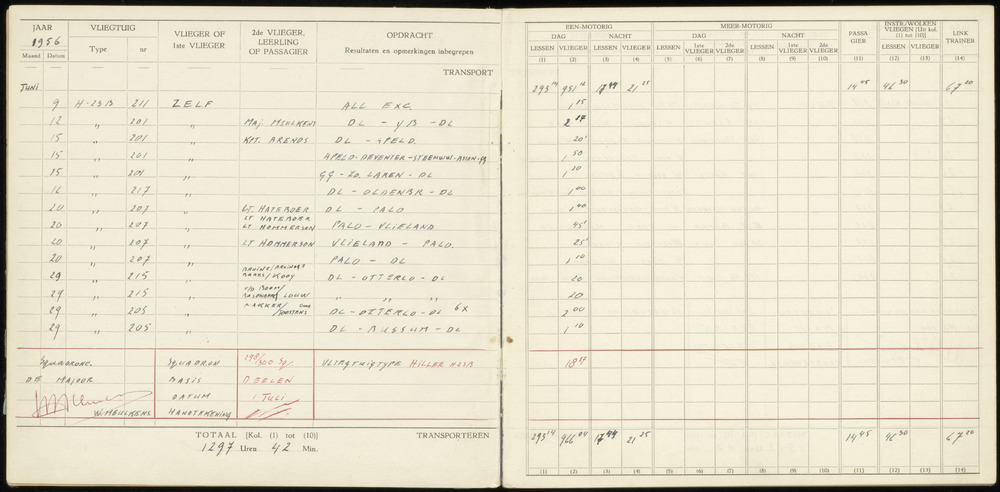 JAAR VLIEGTUIG VLIEGER OF 1ste VLIEGER 2de VLIEGER, LEERLING OF PASSAGIER OPDRACHT
1956 Type nr Resultaten en opmerkingen inbegrepen
Maand Datum
TRANSPORT
JUNI
9 H-23B 211 ZELF ALL EXC.
12 ,, 201 ,, Maj. MEULKENS DL - YB - DL
15 ,, 201 ,, KPT. ARENDS DL - APELD.
15 ,, 201 ,, APELD-DEVENTER-STEENWIJK-ASSEN-GG
15 ,, 201 ,, GG - ZO. LAREN - DL
16 ,, 217 ,, DL - OLDENBR - DL
20 ,, 207 ,, LT. HATEBOER DL - PALO
20 ,, 207 ,, LT HATEBOER LT HOMMERSON PALO - VLIELAND
20 ,, 207 ,, LT HOMMERSON VLIELAND - PALO.
20 ,, 207 ,, PALO - DL
29 ,, 215 ,, KOOY DL - OTTERLO - DL
29 ,, 215 ,, LOUW ,, ,, ,,
29 ,, 205 ,, DL - OTTERLO - DL 6X
29 ,, 205 ,, DL - BUSSUM - DL
SQUADRONC. SQUADRON 298/300 Sq. VLIEGTUIGTYPE HILLER H23B
DE MAJOOR BASIS DEELEN
DATUM 1 JULI
W. MEULKENS HANDTEKENING
TOTAAL [Kol. (1) tot (10)] TRANSPORTEREN
1297 Uren 42 Min.
EEN-MOTORIG MEER-MOTORIG INSTR/WOLKEN VLIEGEN [IJn kol. (1) tot (10)]
DAG NACHT DAG NACHT PASSA GIER LINK TRAINER
LESSEN VLIEGER LESSEN VLIEGER LESSEN 1ste VLIEGER 2de VLIEGER LESSEN 1ste VLIEGER 2de VLIEGER LESSEN VLIEGER
(1) (2) (3) (4) (5) (6) (7) (8) (9) (10) (11) (12) (13) (14)
295 14 951 12 17 44 21 25 14 45 46 30 67 20
1 15
2 17
20'
1 50
1 20
1 00
1 40
45'
25'
1 10
20
20
2 00
1 10
18 27
295 14 966 04 17 44 21 25 14 45 46 30 67 20
(1) (2) (3) (4) (5) (6) (7) (8) (9) (10) (11) (12) (13) (14)